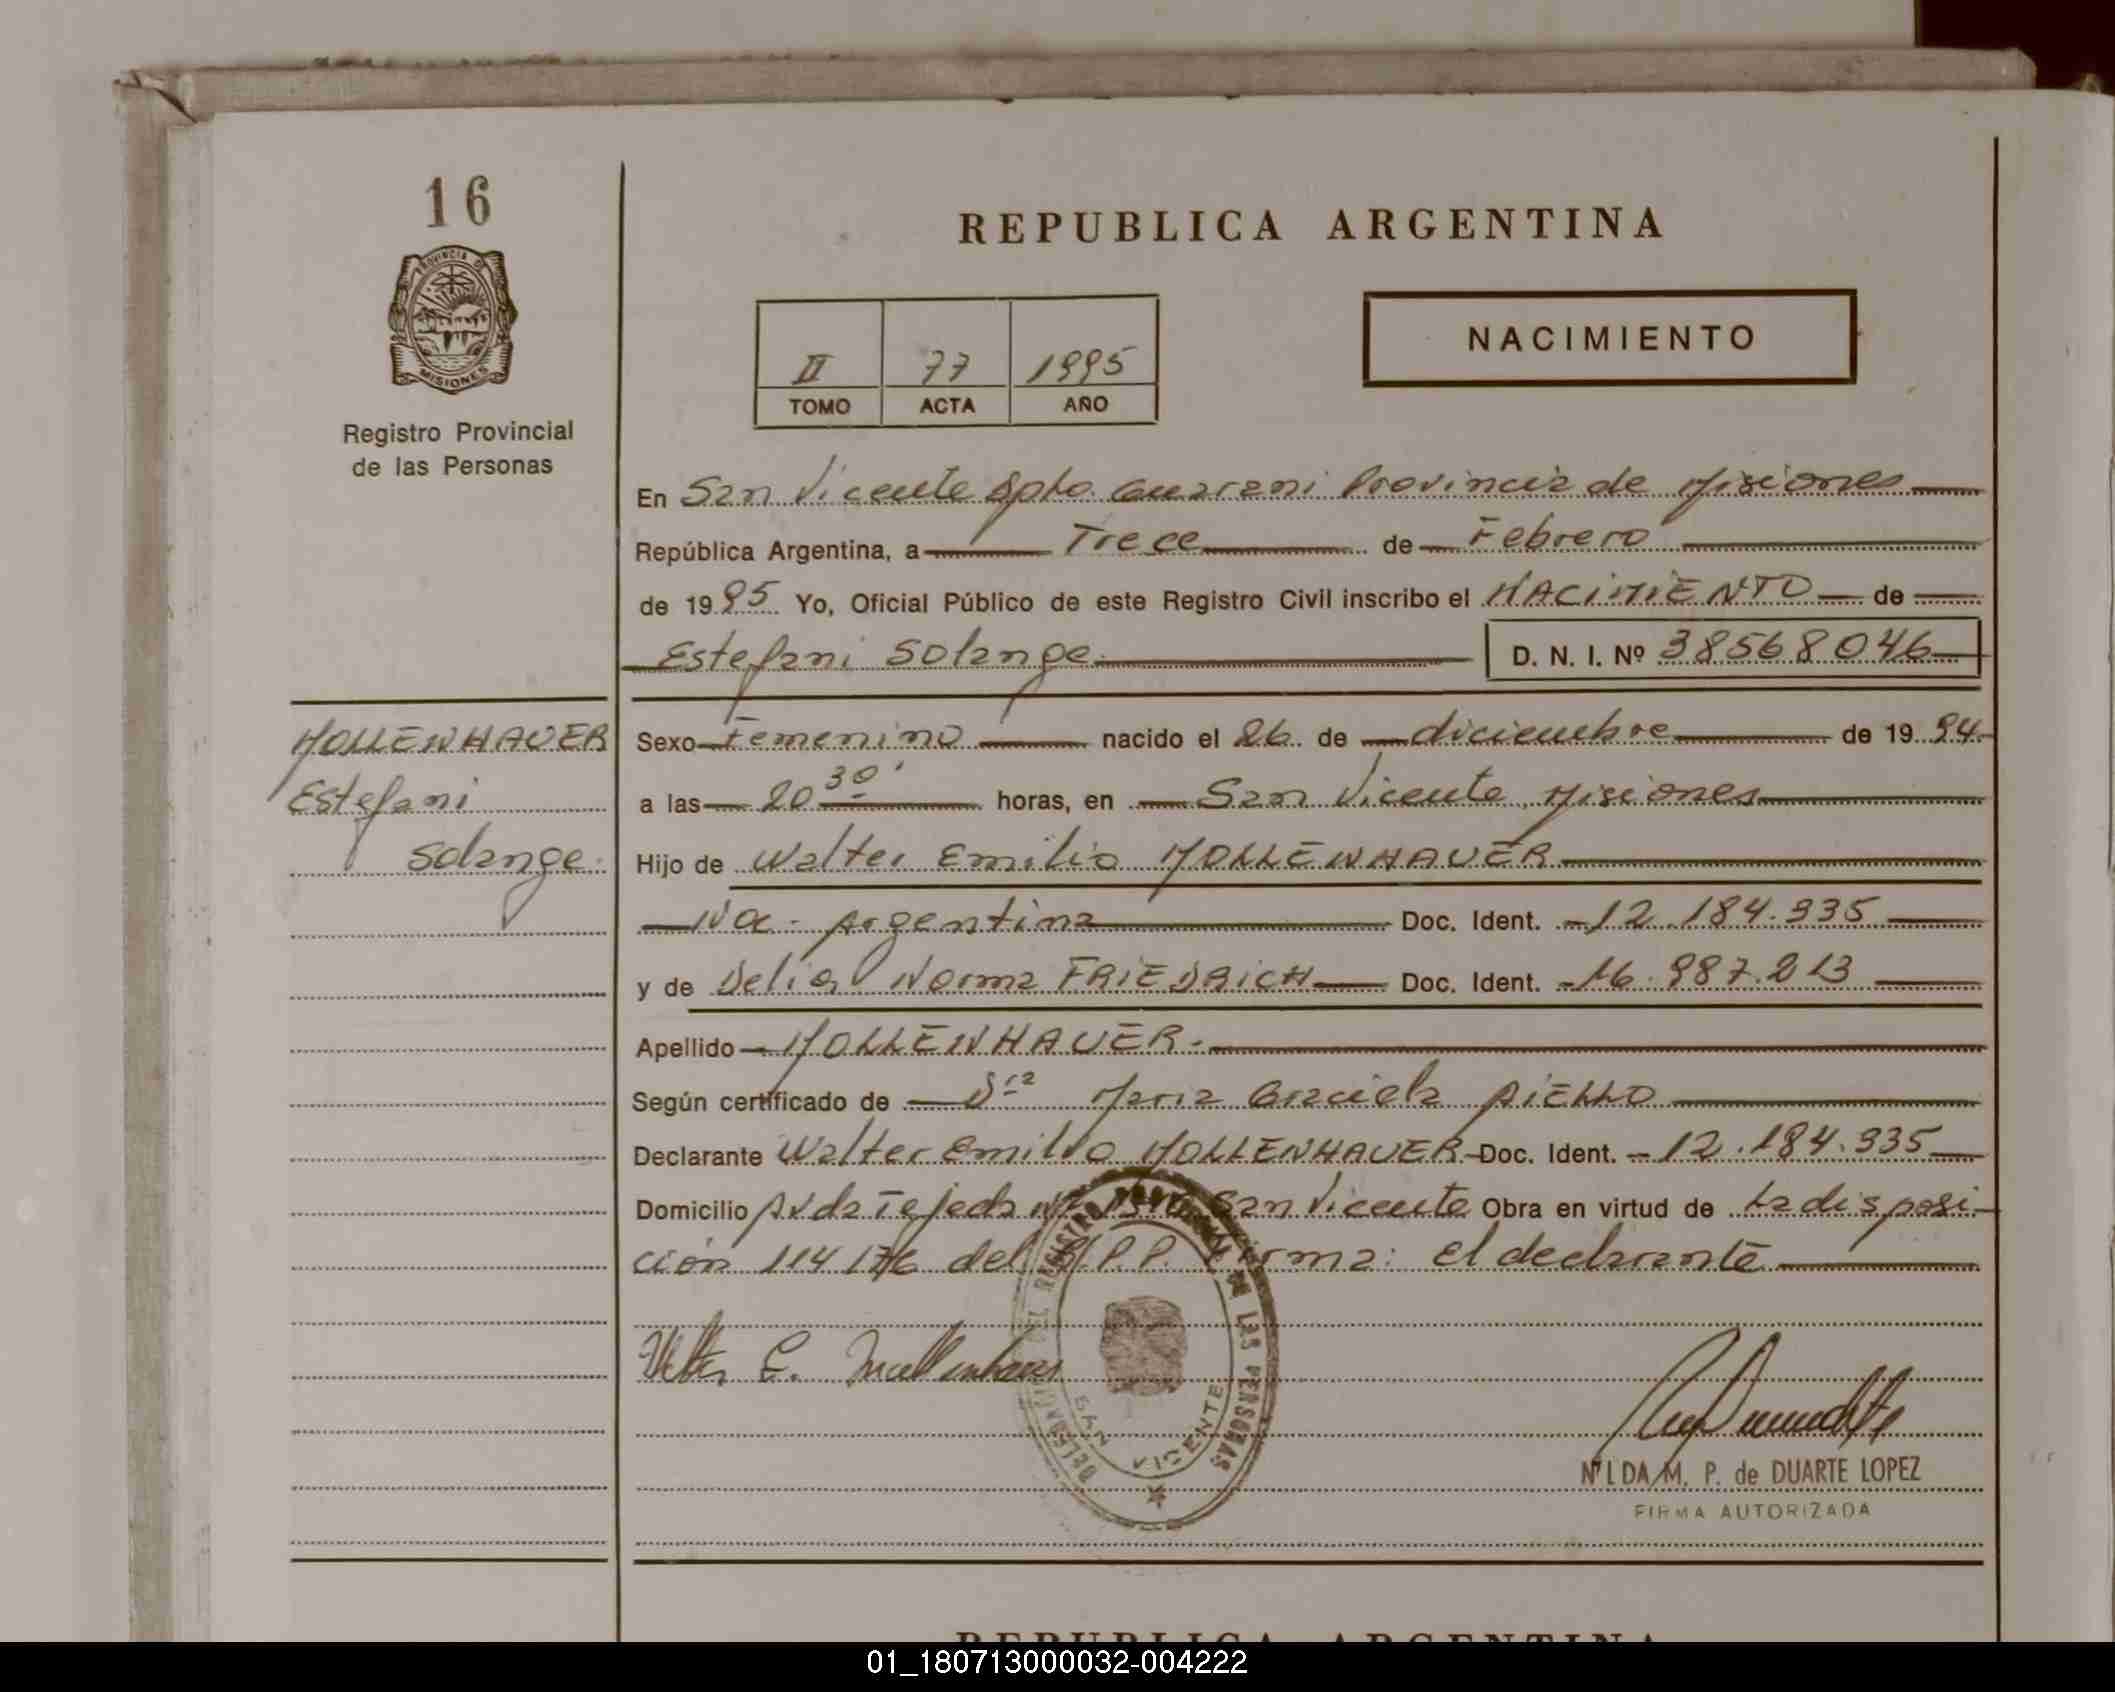 16
PROVINCIA DE
MISIONES
Registro Provincial
de las Personas
REPUBLICA ARGENTINA
II 77 1995
TOMO ACTA AÑO
NACIMIENTO
En San Vicente Dpto. Guarani Provincia de Misiones
República Argentina, a Trece de Febrero
de 1995 Yo, Oficial Público de este Registro Civil inscribo el NACIMIENTO de
Estefani Solange D. N. I. Nº 38568046
MOLLENHAUER
Estefani
Solange.
Sexo Femenino nacido el 26 de diciembre de 1994
a las 20 30' horas, en San Vicente, Misiones
Hijo de Walter Emilio MOLLENHAUER
Na. Argentina Doc. Ident. 12.184.935
y de Delia Norma FRIEDRICH Doc. Ident. 16.987.213
Apellido MOLLENHAUER.
Según certificado de Dra Maria Graciela AIELLO
Declarante Walter Emilio MOLLENHAUER Doc. Ident. 12.184.935
Domicilio Avda Tejeda San Vicente Obra en virtud de La disposi-
ción 114/76 del R.P.P. Firma: El declarante
Walter E. Mollenhauer
DELEGACION DEL REGISTRO DE LAS PERSONAS
SAN VICENTE
NILDA M. P. de DUARTE LOPEZ
FIRMA AUTORIZADA
REPUBLICA ARGENTINA
01_180713000032-004222